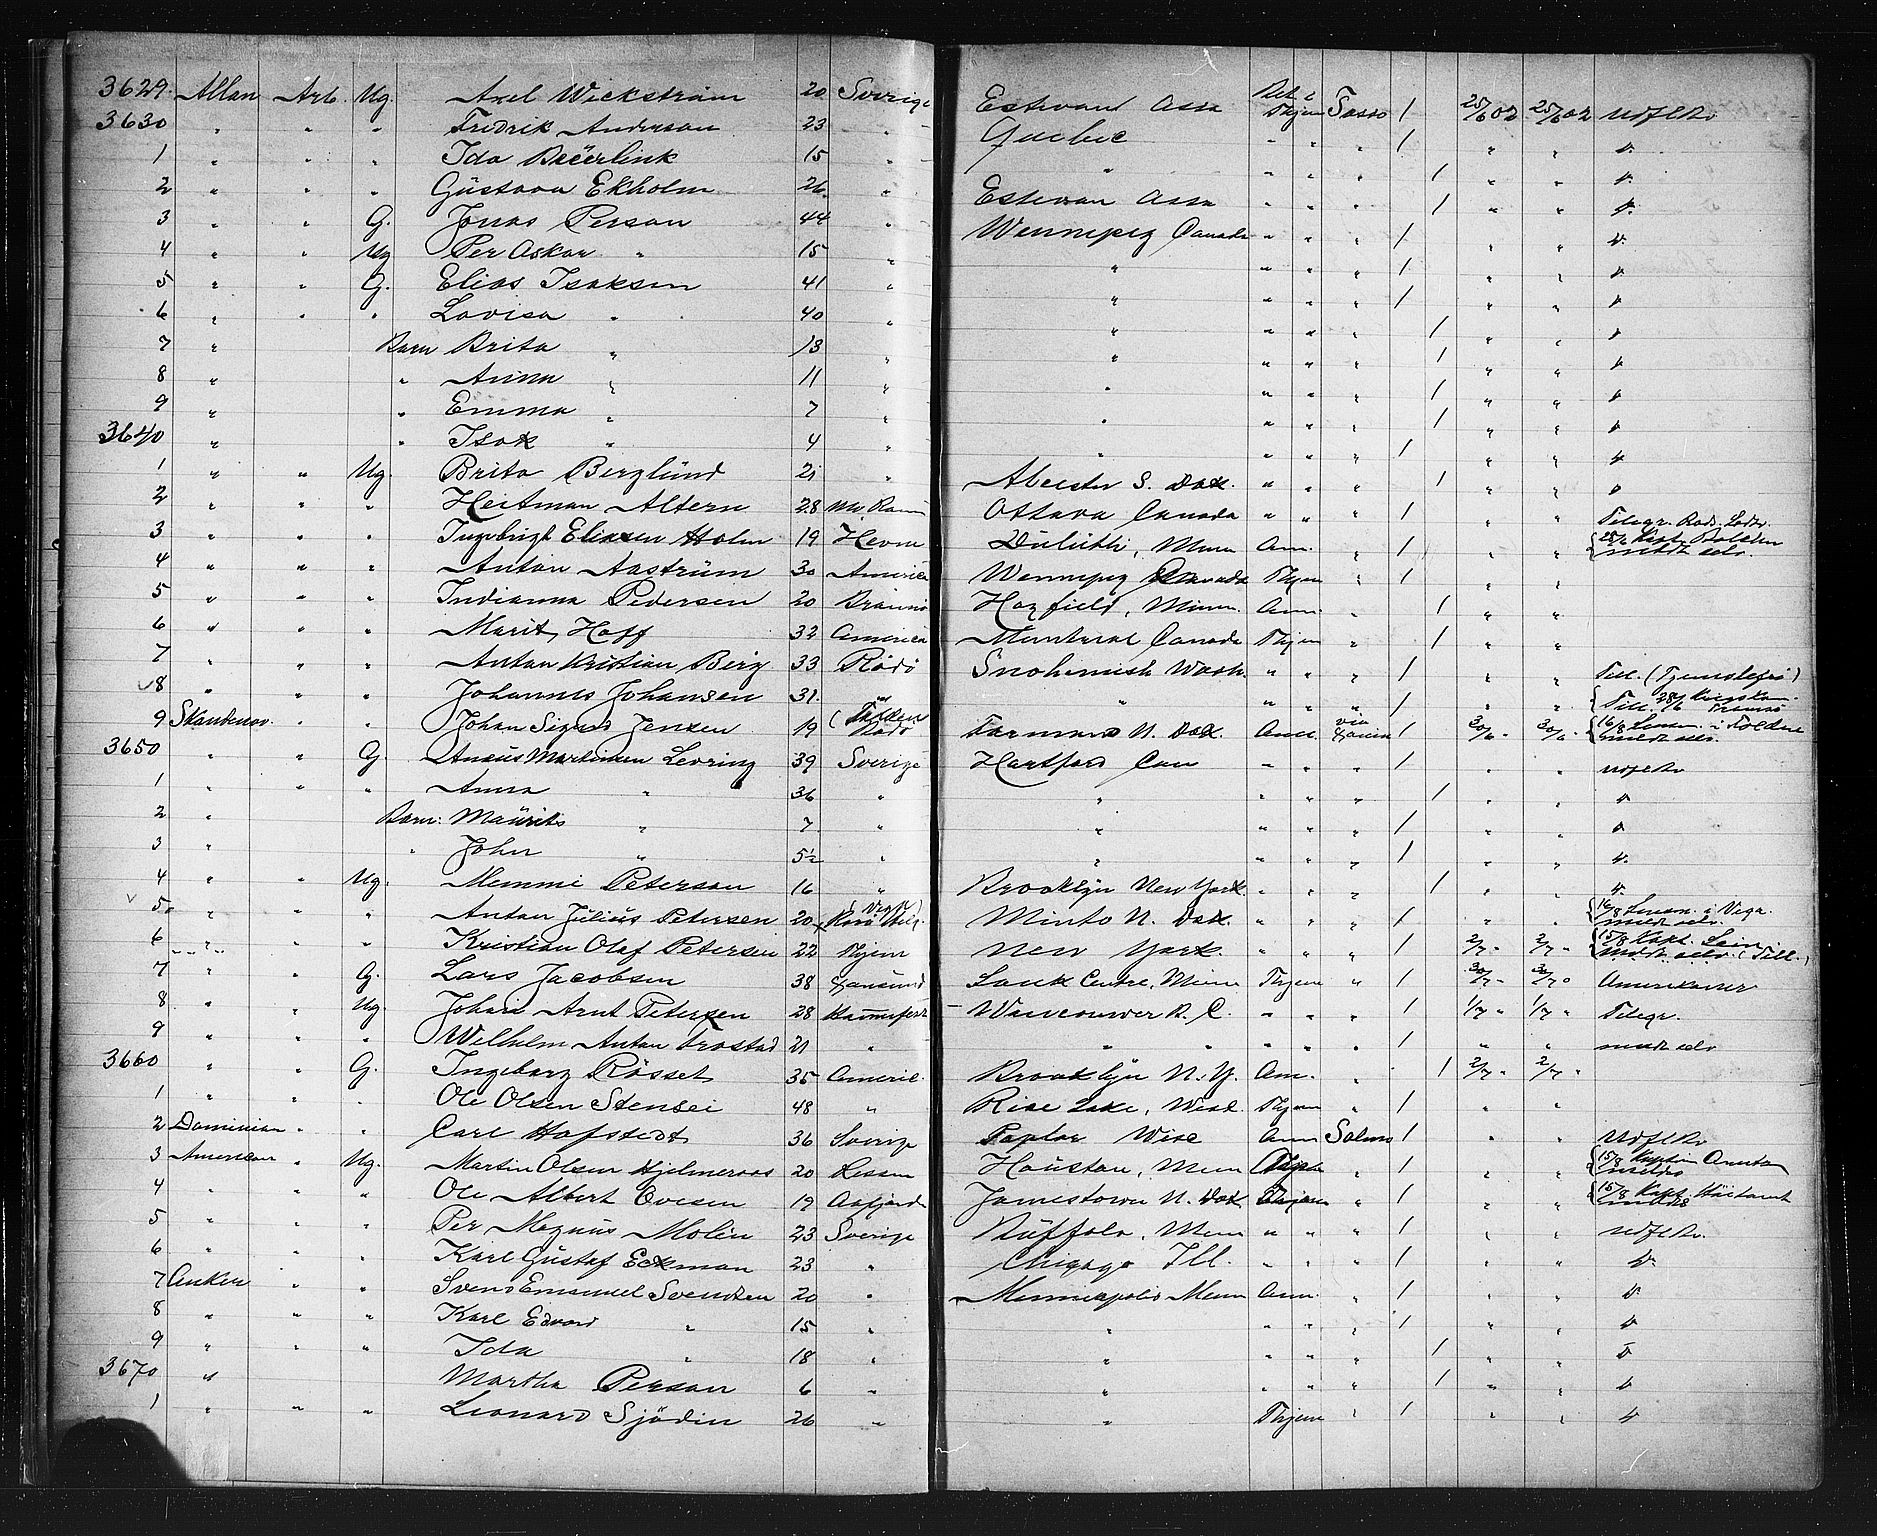 3629. Allan Arb. Ug. Axel Wickström 20 Sverige Estevan Assa Bet. i Thjem Tasso 1 25/6 02 25/6 02 Udfl Ro
3630 " " " Fredrik Anderson 23 " Quebec " " " 1 " " "
1 " " " Ida 15 " " " " " 1 " " "
2 " " " Gustava Ekholm 26 " Estevan Assa " " " 1 " " "
3 " " G. Jonas Person 44 " Wennepeg Canada " " " 1 " " "
4 " " Ug Per Oskar " 15 " " " " " 1 " " "
5 " " G. Elias Isaksen 41 " " " " " 1 " " "
6 " " " Lovisa " 40 " " " " " 1 " " "
7 " Barn Brita " 13 " " " " " 1 " " "
8 " " Anna " 11 " " " " " 1 " " "
9 " " Emma " 7 " " " " " 1 " " "
3640 " " Isak " 4 " " " " " 1 " " "
1 " " Ug. Brita Berglünd 21 " S. Dak. " " " 1 " " "
2 " " " Heitman Altern 28 Ottava Canada " " " 1 " " Telegr.
3 " " " Ingebrigt Eliasen Holm 19 Hevne Duluth, Minn Am. " 1 " " meldt selv.
4 " " " Anton Aastrüm 30 America Wennepeg Canada Thjem " 1 " "
5 " " " Indianna Pedersen 20 Hayfield, Minn. Am. " 1 " "
6 " " " Marit Hoff 32 America Muntreal Canada Thjem " 1 " "
7 " " " Anton Kristian Berg 33 Rödö Snohomish Wash. " " " 1 " " Till. (Tjenstefri)
8 " " " Johannes Johansen 31. " " " " " 1 " " Till. 28/6 Tromsö
9 Skandinav. " " Johan Sigurd Jensen 19 N. Dak. Am. via 1 30/6 " 30/6 " 16/8 Lensm. i Folden meldt selv.
3650 " " G. Martinsen Levring 39 Sverige Hartford Con " " " 1 " " Udfl Ro
1 " " " Anna " 36 " " " " " 1 " " "
2 " Barn. Maürits " 7 " " " " " 1 " " "
3 " " John " 5½ " " " " " 1 " " "
4 " " Ug. Memmi Peterson 16 " Brooklyn New York. " " " 1 " " "
5 " " " Antan Jülius Petersen 20 (Vega) Minto N. Dak. " " " 1 " " 16/8 Lensm. i Vega. meldt selv.
6 " " " Kristian Olaf Petersen 22 Thjem New York. " " " 1 2/7 " 2/7 " 15/8 Kapt. meldt selv. (Till.)
7 " " G. Lars Jacobsen 38 Xansund Sauk Centre, Minn Thjem " 1 30/6 " 30/6 " Amerikaner
8 " " Ug. Johan Arnt Petersen 28 Hammerfest Wancouwer B. C. " " " 1 1/7 " 1/7 " Telegr.
9 " " " Wilhelm Antan Frostad 21 " " " " " 1 " " meldt selv
3660 " " G. Ingeborg Rösset 35 Americ. Brooklyn N. Y. Am. " 1 2/7 " 2/7 "
1 " " " Ole Olsen Stensei 48 " Rice Lake, Wisc. Thjem " 1 " "
2 Dominian " " Carl Hofstedt 36 Sverige Poplar Wisc Am Salmo 1 " " Udfl Ro
3 American " Ug. Martin Olsen Hjelmeraas 20 Houstan, Minn " 1 " " 15/8 Kaptein meldt
4 " " " Ole Albert Ovesen 19 Aafjord Jamestown N. Dak Thjem " 1 " " 15/8 Kapt. meldt
5 " " " Per Magnus Molin 23 Sverige Buffalo, Minn " " " 1 " " Udfl Ro.
6 " " " Karl Gustaf Eckman 23 " Chigago Ill. " " " 1 " " "
7 Anker " " Svend Emanuel Svendsen 20 " Minneapolis Minn Am. " 1 " " "
8 " " " Karl Edvard " 15 " " " " " 1 " " "
9 " " " Ida " 18 " " " " " 1 " " "
3670 " Martha Person 6 " " " " " 1 " " "
1 " " " Leonard Sjödin 26 " " Thjem " 1 " " "